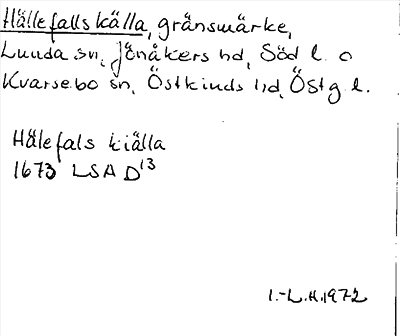 Hällefalls källa, gränsmärke,
Lunda sn, Jönåkers hd, Söd l. o
Kvarsebo sn, Östkinds hd, Östg l.
Hälefals kiälla
1673 LSA D¹³
I.-L.H. 1972